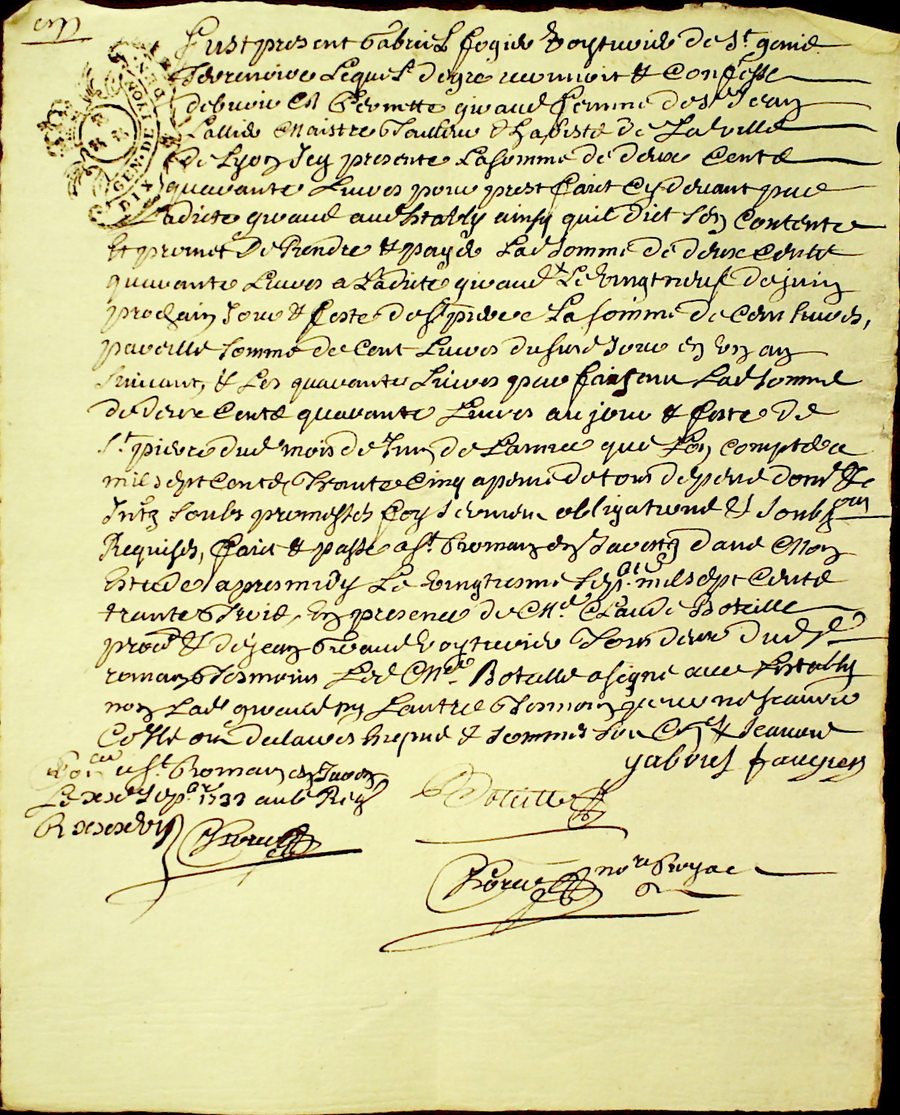 Fust present Gabriel fogier voyturier de St. genis
Terrenoire Lequel de gre reconnoit & Confesse
debvoir A Pernette giraud femme de Sr Jean
Maistre Tailleur & habistt de La ville
De Lyon Icy presente La somme de deux Cents
quarante Livres pour prest faict Cy devant par
Ladicte giraud aud Estably ainsy quil dict Sen Contente
Et promet De Rendre & payer Lad somme de deux Cents
quarante Livres a Ladicte giraud Le vingtneuf de juin
prochain Jour & feste de St pierre La somme de Cent Livres,
pareille somme de Cent Livres dud Jour en un an
Suivant, & Les quarante Livres par fin Lad somme
de deux Cents quarante Livres au jour & feste de
St. pierre dud mois de Juin de Lannee que Lon comptera
mil sept Cents Trante Cinq a peine de tous despens dom &
Intz Soubs promesses foy serment obligations & Soubz
Requises, faict & passé a St. Romain en Jarestz dans Mon
Estude apres midy Le vingtiesme sepbre. mil sept Cents
trante Trois, En presence de Me. Claude Boteille
procr & de jean giraud voyturier Tous deux dud St
romain Tesmoins Led Me. Boteille a signé avec Lestably
non Lad giraud ny Lautre Tesmoin pour ne scavoir
Comme ont declaré Enquis & sommés
gabriel faugier
a St. Romain en Jarest
Le sepbre 1733
Boteille
nore Royal